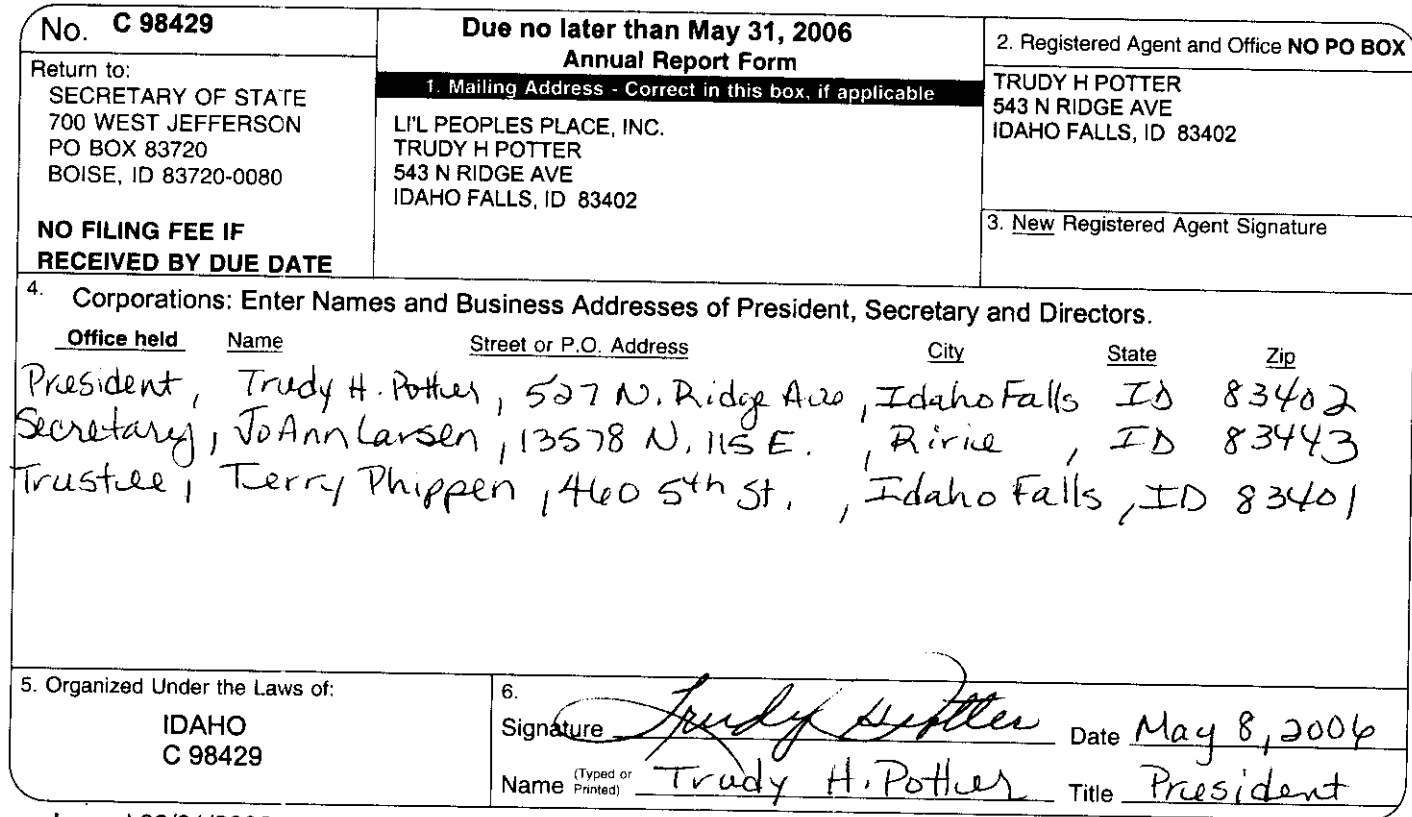 No. C 98429
Return to:
SECRETARY OF STATE
700 WEST JEFFERSON
PO BOX 83720
BOISE, ID 83720-0080
NO FILING FEE IF
RECEIVED BY DUE DATE
Due no later than May 31, 2006
Annual Report Form
1. Mailing Address - Correct in this box, if applicable
LI'L PEOPLES PLACE, INC.
TRUDY H POTTER
543 N RIDGE AVE
IDAHO FALLS, ID 83402
2. Registered Agent and Office NO PO BOX
TRUDY H POTTER
543 N RIDGE AVE
IDAHO FALLS, ID 83402
3. New Registered Agent Signature
4. Corporations: Enter Names and Business Addresses of President, Secretary and Directors.
Office held Name Street or P.O. Address City State Zip
President, Trudy H. Potter, 527 N. Ridge Ave, Idaho Falls ID 83402
Secretary, JoAnn Larsen, 13578 N. 115 E., Ririe, ID 83443
Trustee, Terry Phippen, 460 5th St., Idaho Falls, ID 83401
5. Organized Under the Laws of:
IDAHO
C 98429
6.
Signature Trudy H Potter Date May 8, 2006
Name (Typed or Printed) Trudy H. Potter Title President